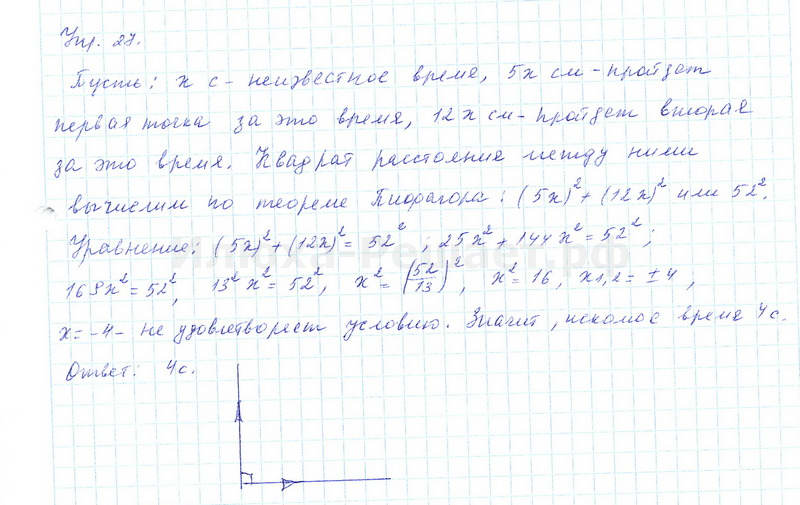 Упр. 27.
Пусть: x с - неизвестное время, 5x см - пройдет
первая точка за это время, 12x см - пройдет вторая
за это время. Квадрат расстояния между ними
вычислим по теореме Пифагора: (5x)² + (12x)² или 52².
Уравнение: (5x)² + (12x)² = 52², 25x² + 144x² = 52²;
169x² = 52², 13²x² = 52², x² = (52/13)², x² = 16, x1,2 = ±4;
x = -4 - не удовлетворяет условию. Значит, искомое время 4с.
Ответ: 4с.